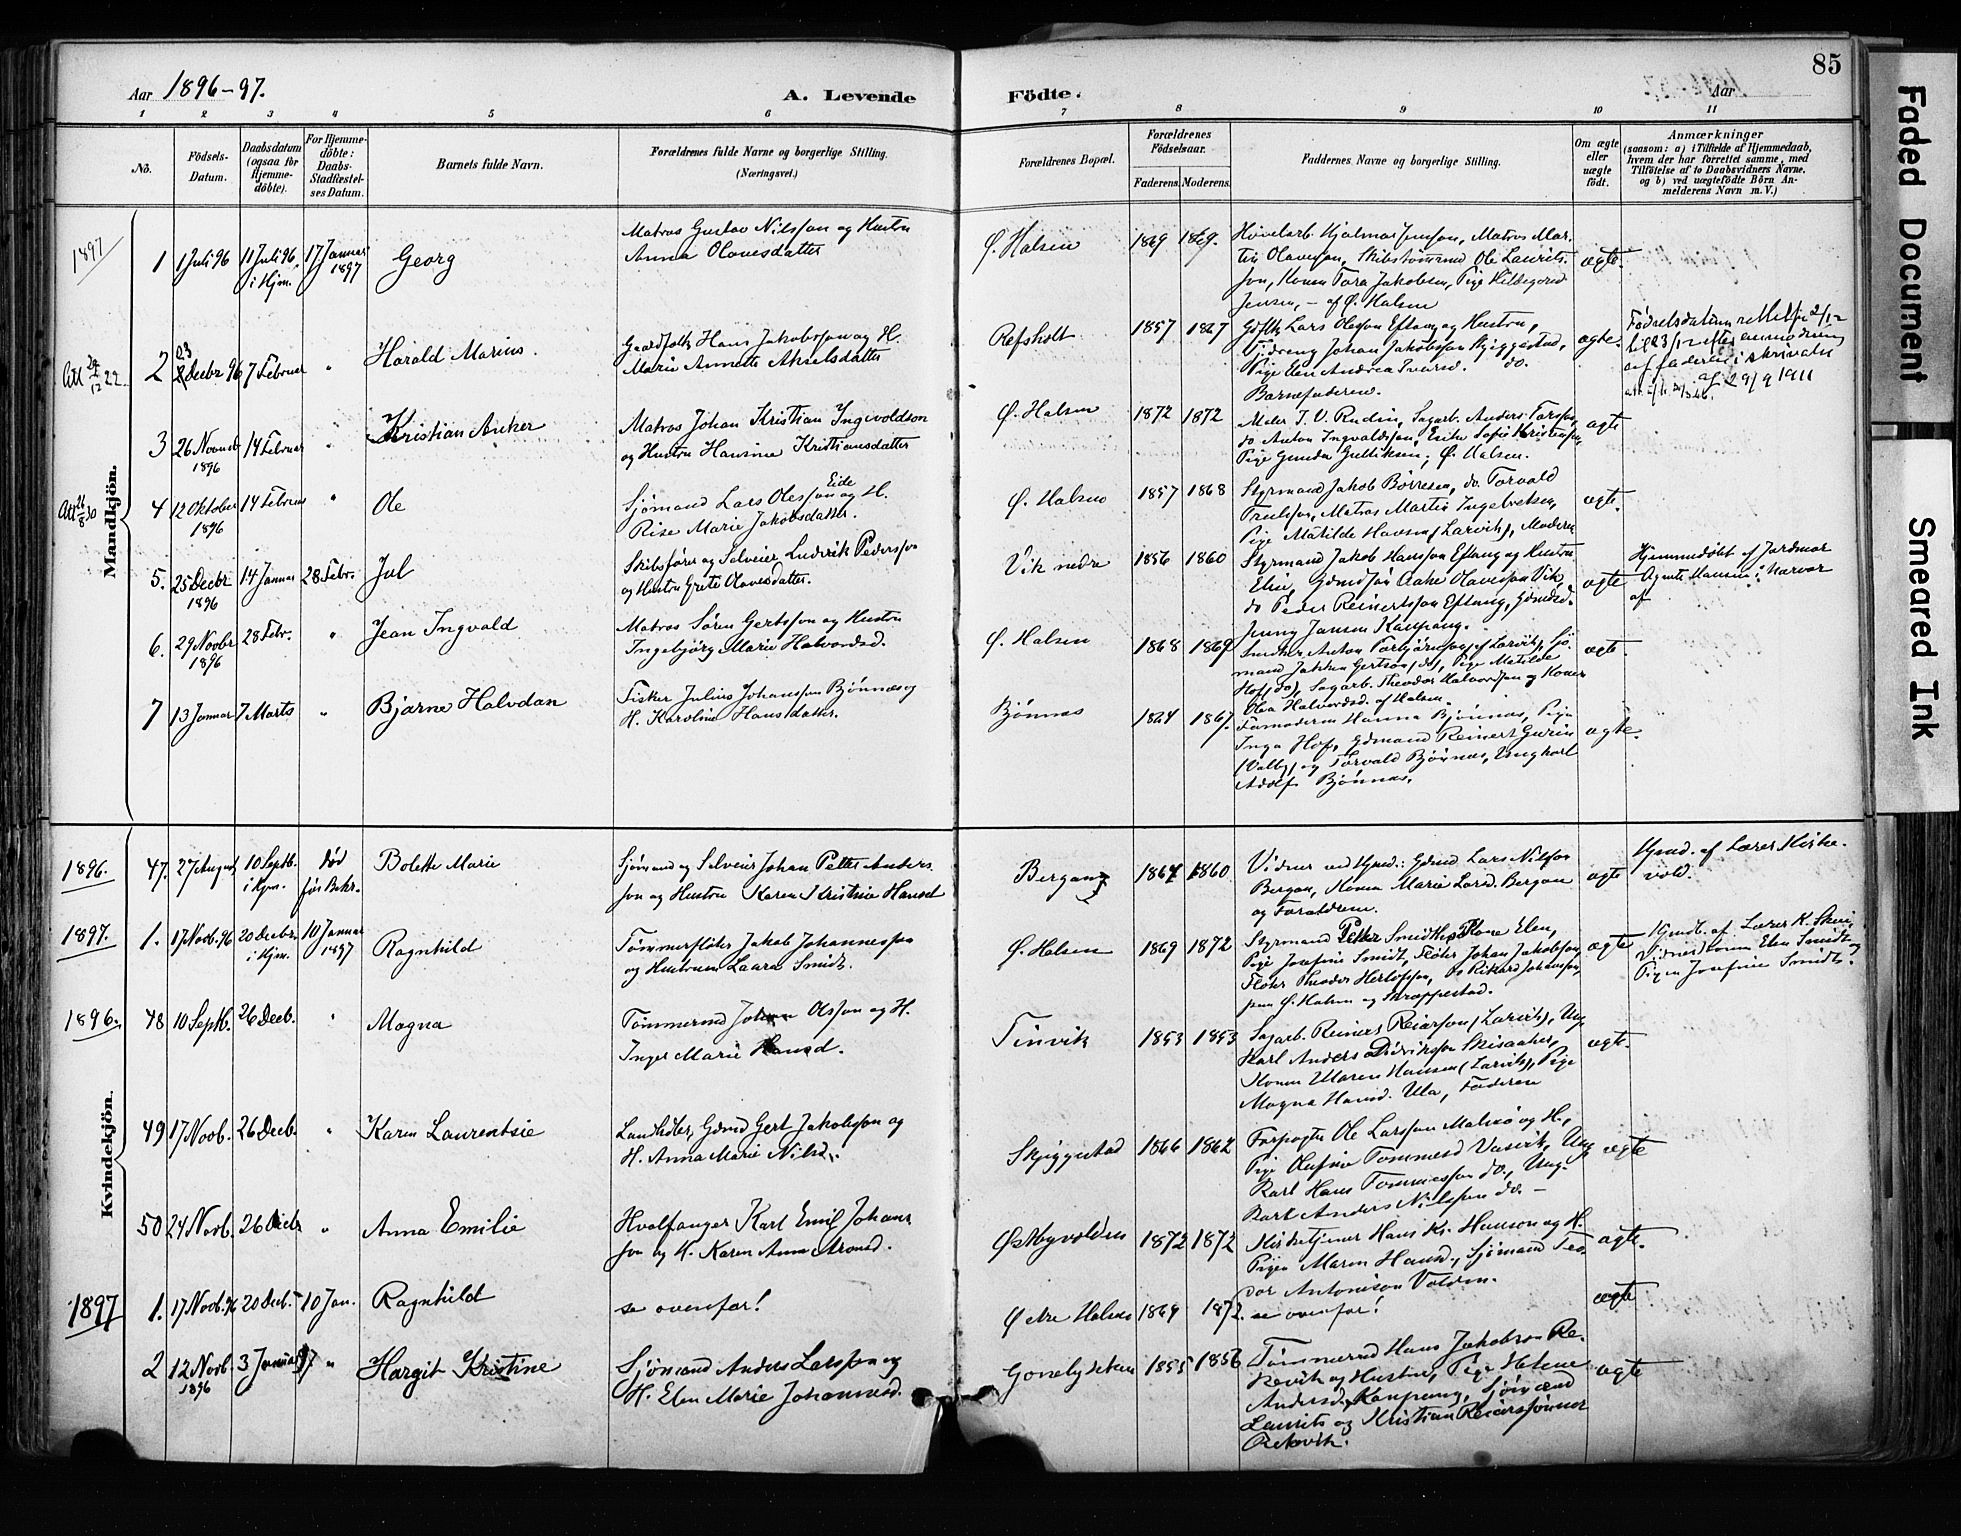 85
Aar 1896-97.
A. Levende
Födte.
Aar
1
2
3
4
5
6
7
8
9
10
11
No.
Födsels-
Datum.
Daabsdatum
(ogsaa for
Hjemme-
döbte).
For Hjemme-
döbte:
Daabs-
Stadfæstel-
ses Datum.
Barnets fulde Navn.
Forældrenes fulde Navne og borgerlige Stilling.
(Næringsvei.)
Forældrenes Bopæl.
Forældrenes
Födselsaar.
Faderens.
Moderens.
Faddernes Navne og borgerlige Stilling.
Om ægte
eller
uægte
födt.
Anmærkninger
(saasom: a) i Tilfælde af Hjemmedaab,
hvem der har forrettet samme, med
Tilföielse af to Daabsvidners Navne,
og b) ved uægtefödte Börn An-
melderens Navn m. V.)
Mandkjön.
1897
1
1 Juli 96
11 Juli 96
i Hjm.
17 Januar
1897
Georg
Matros Gustav Nilsson og Hustru
Anna Olavesdatter
Ø. Halsen
1869
1869.
Høvelarb. Hjalmar Jensson, Matros Mar-
tin Olavesson, Skibstømmd Ole Laurits-
son, Konen Tora Jakobsen, Pige Hildegard
Jensen, - af Ø. Halsen
ægte.
Att 22.
2
23
2 Decbr 96
7 Februar
"
Harald Marius.
Gaardfolk Hans Jakobsson og H.
Marie Annette Akselsdatter
Refsholt
1857
1867
Gdflk Lars Olesson Eftang og Hustru,
Tjdreng Johan Jakobsson Skjeggestad,
Pige Elen Andrea Svarsd. do.
Barnefaderen.
ægte.
Fødselsdatum rettet fra 2/12
til 23/12 efter anmodning
af faderen i skrivelse
af 29/9 1911
3
26 Novembr
1896
14 Februar
"
Kristian Anker
Matros Johan Kristian Ingvoldson
og Hustru Hansine Kristiansdatter
Ø. Halsen
1872
1872
Maler J. V. Rudin, Sagarb. Anders
do Anton Ingvaldsson, Enke Sofie Kristensen,
Pige Gunda Gulliksen, Ø. Halsen.
ægte
Att 26/8
4
12 Oktober
1896
14 Februar
"
Ole
Sjømand Lars Olesson Eide og H.
Rise Marie Jakobsdatter.
Ø. Halsen
1857
1868
Styrmand Jakob Børresen, do. Torvald
Trulsson, Matros Martin Ingebretsen,
Pige Matilde Hansen (Larvik), Moderen
ægte.
5.
25 Decbr
1896
14 Januar
28 Febr.
Jul
Skibsfører og Selveier Ludvik Pedersson
og Hustru Grete Olavesdatter.
Vik nedre
1856
1860
Styrmand Jakob Hansson Eftang og Hustru
Elin, Gdmdsøn Aake Olavesson Vik,
do Peder Reinertsson Eftang, Gdmdsd.
Jenny Jansen Kaupang.
ægte
Hjemmedøbt af Jordmor
Agnete Hansen
af
6.
29 Novbr
1896
28 Febr.
"
Jean Ingvald
Matros Søren Gertsson og Hustru
Ingebjørg Marie Halvordsd.
Ø. Halsen
1868
1869
Snedker Anton Torbjørnson, af Larvik, Sjø-
mand Jakken Gertson, do, Pige Matilde
Hof, do, Sagarb. Theodor Halvordsen og Konen
Olea Halvordsd. af Halsen.
ægte.
7
13 Januar
7 Marts
"
Bjarne Halvdan
Fisker Julius Johansson Bjønnes og
H. Karoline Hansdatter.
Bjønnæs
1864
1867.
Farmoderen Hanna Bjønnæs, Pige
Inga Hof, Gdmand Reinert Gurin
(Valby) og Torvald Bjønnæs, Ungkarl
Adolf Bjønnæs.
ægte.
Kvindekjön.
1896.
47.
27 August
10 Septb.
i Hjm.
Død
før Bekr.
Bolette Marie
Sjømand og Selveier Johan Petter Anders-
son og Hustru Karen Kristine Hansd
Bergan
1867
1860
Vidner ved Hjmd.: Gdmd Lars Nilsson
Bergan, Konen Marie Larsd. Bergan
og Forældrene.
ægte
Hjmd. af Lærer Kirke-
vold.
1897.
1.
17 Novb. 96
20 Decbr
i Hjm.
10 Januar
1897
Ragnhild
Tømmerfløter Jakob Johannesson
og Hustruen Laura Smidt.
Ø. Halsen
1869
1872
Styrmand Petter Smidt, Kone Elen,
Pige Josefine Smidt, Fløter Johan Jakobsson,
Fløter Theodor Herlofsson, do Rikard Johansson,
paa Ø. Halsen og Skrappestad.
ægte
Hjmdt. af Lærer K. Skui,
Vidnes Konen Elen Smidt og
Pigen Josefine Smidt.
1896.
48
10 Septb.
26 Decb.
"
Magna
Tømmermd Johan Olsson og H.
Inger Marie Hansd.
Tinvik
1853
1853
Sagarb. Reinert Reiersson (Larvik), Ung-
Karl Anders Didriksson Skisaaker,
Konen Maren Hansen (Larvik), Pige
Magna Hansd. Ula, Faderen
ægte.
49
17 Novb.
26 Decb.
"
Karen Laurentsie
Landhdler, Gdmd Gert Jakobsson og
H. Anna Marie Nilsd.
Skjeggestad
1866
1862
Forpagter Ole Larsson Malmø og H.,
Pige Olufine Tommesd Vasvik, Ung-
Karl Hans Tommesson do., Ung-
Karl Anders Nilsson do. -
ægte
50
24 Novb.
26 Decbr
"
Anna Emilie
Hvalfanger Karl Emil Johans-
son og H. Karen Anna Aronsd.
Østbyvolden
1872
1872
Kirketjener Hans Kr. Hansson og H.
Pigen Maren Hansd., Sjømand Teo-
dor Antonison Volden.
ægte.
1897
1.
17 Novb. 96
20 Decb.
10 Jan.
Ragnhild
se ovenfor!
Østre Halsen
1869
1872.
se ovenfor!
ægte
2
12 Novb.
1896
3 Januar 97
"
Hargit Kristine
Sjømand Anders Larsson og
H. Elen Marie Johannesd.
Gonebysetern
1855
1856
Tømmermd Hans Jakobson Re-
kevik og Hustru, Pige Helene
Andersd. Kaupang, Sjømænd
Laurits og Kristian Reierssønner
Rekevik.
ægte
Faded Document
Smeared Ink